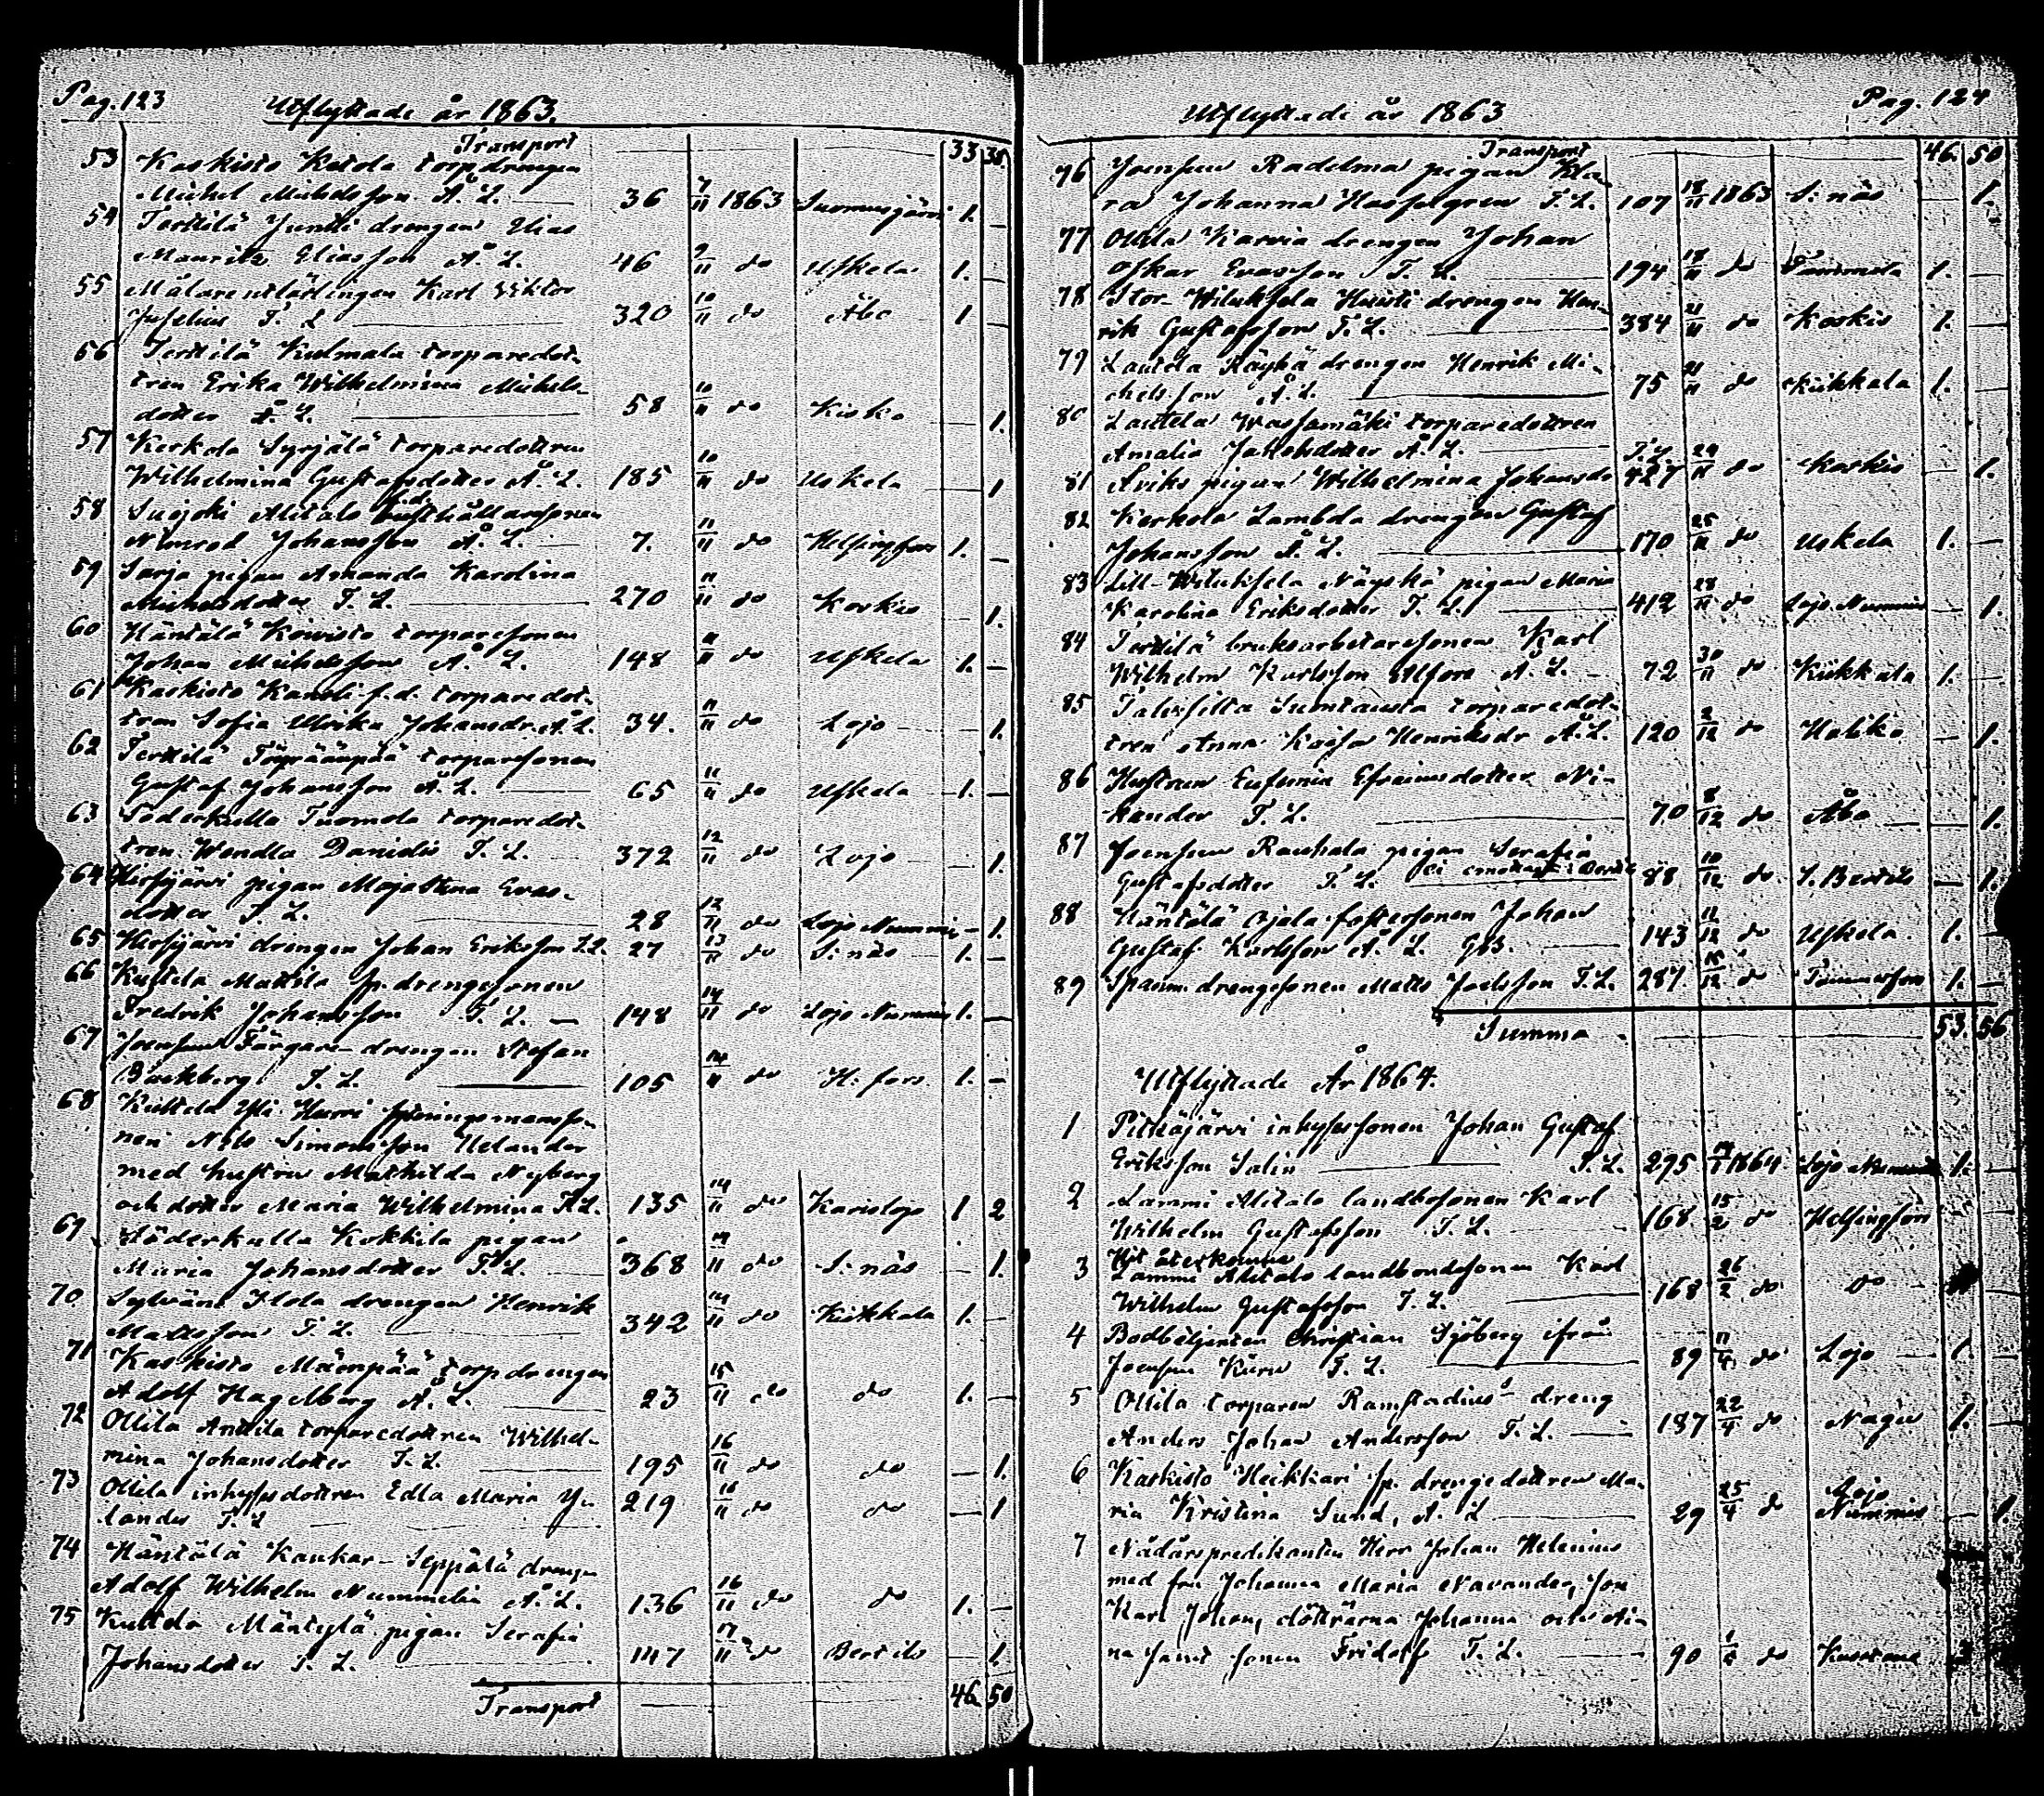 Pag. 123
Utflyttade år 1863.
Transport 33 38.
53 Kaskisto Ketola torpdrengen
Michel Michelsson Å. L. 36 7/11 1863 Suomusjärvi 1. —
54 Terttilä Juntti drengen Elias
Mauritz Eliasson Å. L. 46 9/11 do Uskela 1. —
55 Målarelärlingen Karl Viktor
Juselius T. L. 320 10/11 do Åbo 1 —
56 Terttilä Kulmala torparedot-
tren Erika Wilhelmina Michels-
dotter Å. L. 58 10/11 do Kisko — 1.
57 Kerkola Syrjälä torparedottren
Wilhelmina Gustafsdotter Å. L. 185 10/11 do Uskela — 1
58 Suojoki Alitalo hushållaresonen
Nimrod Johansson Å. L. 7. 11/11 do Helsingfors 1. —
59 Sarja pigan Amanda Karolina
Michelsdotter T. L. 270 11/11 do Koskis 1.
60 Häntälä Koivisto torparesonen
Johan Michelsson Å. L. 148 11/11 do Uskela 1. —
61 Kaskisto f. d. torparedot-
tren Sofia Ulrika Johansdr. Å. L. 34. 11/11 do Lojo — 1.
62 Terttilä Töyräänpää torparesonen
Gustaf Johansson Å. L. 65 11/11 do Uskela 1. —
63 Söderkulla Tuomola torparedot-
tren Wendla Danielis T. L. 372 12/11 do Lojo — 1.
64 Hirsijärvi pigan Maja Stina Evas-
dotter T. L. 28 12/11 do Lojo Nummi — 1.
65 Hirsijärvi drengen Johan Eriksson T. L. 27 13/11 do S:näs 1. —
66 Kultela Mattila sp. drengesonen
Fredrik Johansson T. L. — 148 14/11 do Lojo Nummis 1. —
67 Joensuu Färgare-drengen Stefan
Backberg T. L. 105 14/11 do H:fors. 1. —
68 Kultela Yli Hurri
nen Nils Simonsson Helander
med hustru Mathilda Nyberg
och dotter Maria Wilhelmina T. L. 135 14/11 do Karislojo 1 2
69 Söderkulla Kokkila pigan
Maria Johansdotter T. L. 368 14/11 do S:näs — 1.
70. Sylvänä Ylola drengen Henrik
Mattsson T. L. 342 14/11 do Kiikkala 1. —
71 Kaskisto Mäenpää torpdrengen
Adolf Hagelberg Å. L. 23 15/11 do do 1. —
72 Ollila Anttila torparedottren Wilhel-
mina Johansdotter T. L. 195 16/11 do do — 1.
73 Ollila inhysesdottren Edla Maria Yr-
lander T. L 219 16/11 do do — 1
74 Häntälä Kaukar-Seppälä drengen
Adolf Wilhelm Nummelin Å. L. 136 16/11 do do 1. —
75 Kultela Mäntylä pigan Serafia
Johansdotter T. L. 147 17/11 do Bertils — 1.
Transport 46 50
Utflyttade år 1863
Pag. 124
Transport 46. 50
76 Joensuu Radelma pigan Kla-
ra Johanna Hasselgren T. L. 107 18/11 1863 S:näs — 1.
77 Ollila Karvia drengen Johan
Oskar Evasson T. L. 194 18/11 do Tammela 1. —
78 Stor-Wiluksela Huisti drengen Hen-
rik Gustafsson T. L. 384 21/11 do Koskis 1. —
79 Lautela Räyhä drengen Henrik Mi-
chelsson Å. L. 75 21/11 do Kiikkala 1. —
80 Lautela Wassamäki torparedottren
Amalia Jakobsdotter Å. L.
81 Aviks pigan Wilhelmina Johansdr T. L. 427 24/11 do Koskis — 1.
82 Kerkola Lambola drengen Gustaf
Johansson Å. L. 170 25/11 do Uskela 1. —
83 Lill-Wiluksela Näyskä pigan Maria
Karolina Eriksdotter T. L. 412 28/11 do Lojo Nummis — 1.
84 Terttilä bruksarbetaresonen Karl
Wilhelm Karlsson Alfors Å. L. 72 30/11 do Kiikkala 1. —
85 Talvisilta Suntausta torparedot-
tren Anna Kaisa Henriksdr Å. L. 120 2/12 do Haliko — 1.
86 Hustrun Eufemia Efraimsdotter Ni-
kander T. L. 70 8/12 do Åbo — 1.
87 Joensuu Rauhala pigan Serafia
Gustafsdotter T. L. ej emottagit i Bertils 88 10/12 do. S. Bertils — 1.
88 Häntälä Ojala fostersonen Johan
Gustaf Karlsson Å. L. 143 11/12 do Uskela 1. —
89 Spanm. drengesonen Matts Joelsson T. L. 287. 15/12 do 1. —
Summa 53. 56
Utflyttade År 1864.
1 Pitkäjärvi inhysessonen Johan Gustaf
Eriksson Salin T. L. 295 1864. Lojo Nummis 1. —
2 Lammi Alitalo landbosonen Karl
Wilhelm Gustafsson T. L. 168 15/2 do Helsingfors
3 Hit återkommen
Lammi Alitalo landbondesonen Karl
Wilhelm Gustafsson T. L. 168 26/2 do do
4 Bodbetjenten Christian Sjöberg ifrån
Joensuu Kärn T. L. 89 11/4 do Lojo 1. —
5 Ollila torparen Ramstadius dreng
Anders Johan Andersson T. L. 187 22/4 do Nagu 1. —
6 Kaskisto Heikkari sp. drengedottren Ma-
ria Kristina Sund, Å. L 29 25/4 do Lojo Nummis — 1.
7 Nådårspredikanten Herr Johan Helenius
med fru Johanna Maria Navander, son
Karl Johan, döttrarna Johanna och Ai-
na samt sonen Fridolf T. L. 90 do